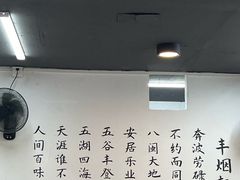 丰烟
奔波劳碌
不约而同
八闽大地
安居乐业
五谷丰登
五湖四海
天涯谁不
人间百味